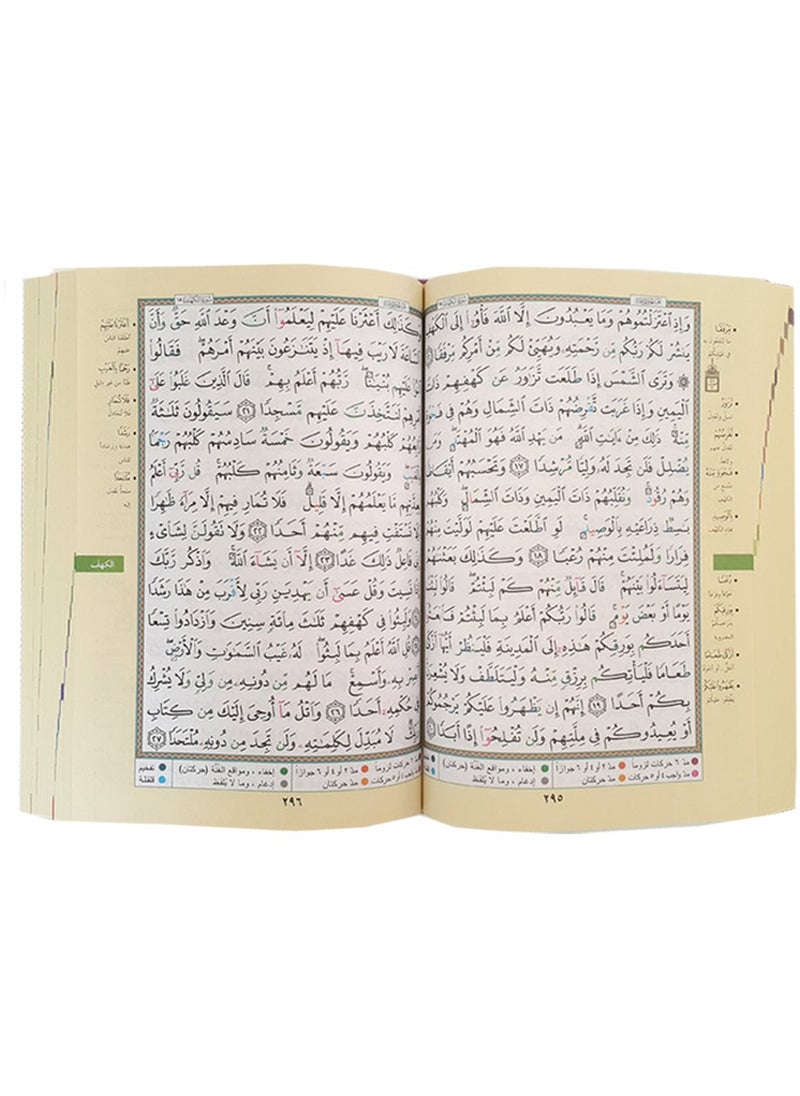 وَإِذِ ٱعْتَزَلْتُمُوهُمْ وَمَا يَعْبُدُونَ إِلَّا ٱللَّهَ فَأْوُۥٓا۟ إِلَى ٱلْكَهْفِ
يَنشُرْ لَكُمْ رَبُّكُم مِّن رَّحْمَتِهِۦ وَيُهَيِّئْ لَكُم مِّنْ أَمْرِكُم مِّرْفَقًا
۞ وَتَرَى ٱلشَّمْسَ إِذَا طَلَعَت تَّزَٰوَرُ عَن كَهْفِهِمْ ذَاتَ
ٱلْيَمِينِ وَإِذَا غَرَبَت تَّقْرِضُهُمْ ذَاتَ ٱلشِّمَالِ وَهُمْ فِى فَجْوَةٍ
مِّنْهُ ۚ ذَٰلِكَ مِنْ ءَايَٰتِ ٱللَّهِ ۗ مَن يَهْدِ ٱللَّهُ فَهُوَ ٱلْمُهْتَدِ ۖ وَمَن
يُضْلِلْ فَلَن تَجِدَ لَهُۥ وَلِيًّا مُّرْشِدًا ١٧ وَتَحْسَبُهُمْ أَيْقَاظًا
وَهُمْ رُقُودٌ ۚ وَنُقَلِّبُهُمْ ذَاتَ ٱلْيَمِينِ وَذَاتَ ٱلشِّمَالِ ۖ وَكَلْبُهُم
بَٰسِطٌ ذِرَاعَيْهِ بِٱلْوَصِيدِ ۚ لَوِ ٱطَّلَعْتَ عَلَيْهِمْ لَوَلَّيْتَ مِنْهُمْ
فِرَارًا وَلَمُلِئْتَ مِنْهُمْ رُعْبًا ١٨ وَكَذَٰلِكَ بَعَثْنَٰهُمْ
لِيَتَسَآءَلُوا۟ بَيْنَهُمْ ۚ قَالَ قَآئِلٌ مِّنْهُمْ كَمْ لَبِثْتُمْ ۖ قَالُوا۟ لَبِثْنَا
يَوْمًا أَوْ بَعْضَ يَوْمٍ ۚ قَالُوا۟ رَبُّكُمْ أَعْلَمُ بِمَا لَبِثْتُمْ فَٱبْعَثُوٓا۟
أَحَدَكُم بِوَرِقِكُمْ هَٰذِهِۦٓ إِلَى ٱلْمَدِينَةِ فَلْيَنظُرْ أَيُّهَآ أَزْكَىٰ
طَعَامًا فَلْيَأْتِكُم بِرِزْقٍ مِّنْهُ وَلْيَتَلَطَّفْ وَلَا يُشْعِرَنَّ
بِكُمْ أَحَدًا ١٩ إِنَّهُمْ إِن يَظْهَرُوا۟ عَلَيْكُمْ يَرْجُمُوكُمْ
أَوْ يُعِيدُوكُمْ فِى مِلَّتِهِمْ وَلَن تُفْلِحُوٓا۟ إِذًا أَبَدًا
مدّ ٦ حركات لزوماً مدّ ٢ أو ٤ أو ٦ جوازاً إخفاء ، ومواقع الغنّة (حركتان)
مدّ واجب ٤ أو ٥ حركات مدّ حركتان إدغام ، وما لا يُلفَظ
٢٩٥
سُورَةُ الكَهْفِ ١٨
وَكَذَٰلِكَ أَعْثَرْنَا عَلَيْهِمْ لِيَعْلَمُوٓا۟ أَنَّ وَعْدَ ٱللَّهِ حَقٌّ وَأَنَّ
ٱلسَّاعَةَ لَا رَيْبَ فِيهَآ إِذْ يَتَنَٰزَعُونَ بَيْنَهُمْ أَمْرَهُمْ ۖ فَقَالُوا۟
ٱبْنُوا۟ عَلَيْهِم بُنْيَٰنًا ۖ رَّبُّهُمْ أَعْلَمُ بِهِمْ ۚ قَالَ ٱلَّذِينَ غَلَبُوا۟ عَلَىٰٓ
أَمْرِهِمْ لَنَتَّخِذَنَّ عَلَيْهِم مَّسْجِدًا ٢١ سَيَقُولُونَ ثَلَٰثَةٌ
رَّابِعُهُمْ كَلْبُهُمْ وَيَقُولُونَ خَمْسَةٌ سَادِسُهُمْ كَلْبُهُمْ رَجْمًۢا
بِٱلْغَيْبِ ۖ وَيَقُولُونَ سَبْعَةٌ وَثَامِنُهُمْ كَلْبُهُمْ ۚ قُل رَّبِّىٓ أَعْلَمُ
بِعِدَّتِهِم مَّا يَعْلَمُهُمْ إِلَّا قَلِيلٌ ۗ فَلَا تُمَارِ فِيهِمْ إِلَّا مِرَآءً ظَٰهِرًا
وَلَا تَسْتَفْتِ فِيهِم مِّنْهُمْ أَحَدًا ٢٢ وَلَا تَقُولَنَّ لِشَا۟ىْءٍ
إِنِّى فَاعِلٌ ذَٰلِكَ غَدًا ٢٣ إِلَّآ أَن يَشَآءَ ٱللَّهُ ۚ وَٱذْكُر رَّبَّكَ
إِذَا نَسِيتَ وَقُلْ عَسَىٰٓ أَن يَهْدِيَنِ رَبِّى لِأَقْرَبَ مِنْ هَٰذَا رَشَدًا
وَلَبِثُوا۟ فِى كَهْفِهِمْ ثَلَٰثَ مِا۟ئَةٍ سِنِينَ وَٱزْدَادُوا۟ تِسْعًا
قُلِ ٱللَّهُ أَعْلَمُ بِمَا لَبِثُوا۟ ۖ لَهُۥ غَيْبُ ٱلسَّمَٰوَٰتِ وَٱلْأَرْضِ ۖ
أَبْصِرْ بِهِۦ وَأَسْمِعْ ۚ مَا لَهُم مِّن دُونِهِۦ مِن وَلِىٍّ وَلَا يُشْرِكُ
فِى حُكْمِهِۦٓ أَحَدًا ٢٦ وَٱتْلُ مَآ أُوحِىَ إِلَيْكَ مِن كِتَابِ
رَبِّكَ ۖ لَا مُبَدِّلَ لِكَلِمَٰتِهِۦ وَلَن تَجِدَ مِن دُونِهِۦ مُلْتَحَدًا ٢٧
الكهف
حركات لزوماً مدّ ٢ أو ٤ أو ٦ جوازاً إخفاء ، ومواقع الغنّة (حركتان) تفخيم
مدّ واجب ٤ أو ٥ حركات مدّ حركتان إدغام ، وما لا يُلفَظ قلقلة
٢٩٦